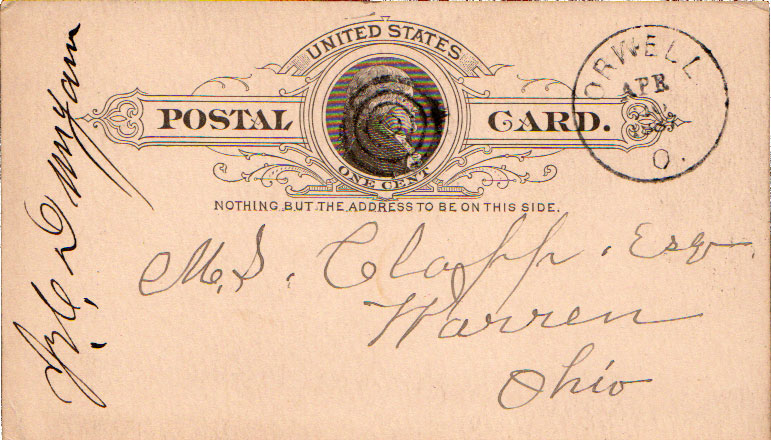 UNITED STATES
POSTAL CARD.
ONE CENT
NOTHING BUT THE ADDRESS TO BE ON THIS SIDE.
ORWELL
APR
O.
M. S. Clapp. Esq.
Warren
Ohio